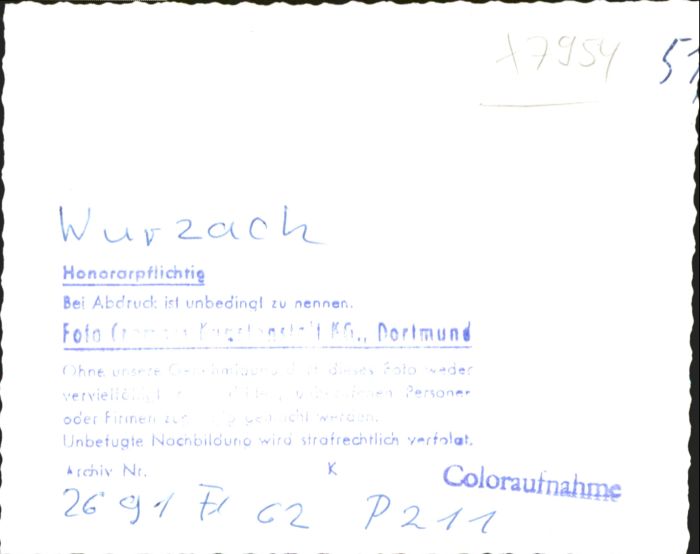 17954 51
Wurzach
Honorarpflichtig
Bei Abdruck ist unbedingt zu nennen.
Foto KG., Dortmund
Ohne unsere Genehmigung darf dieses Foto weder
oder Firmen gemacht werden.
Unbefugte Nachbildung wird strafrechtlich verfolgt.
Archiv Nr. K
Coloraufnahme
26 91 62 P 211